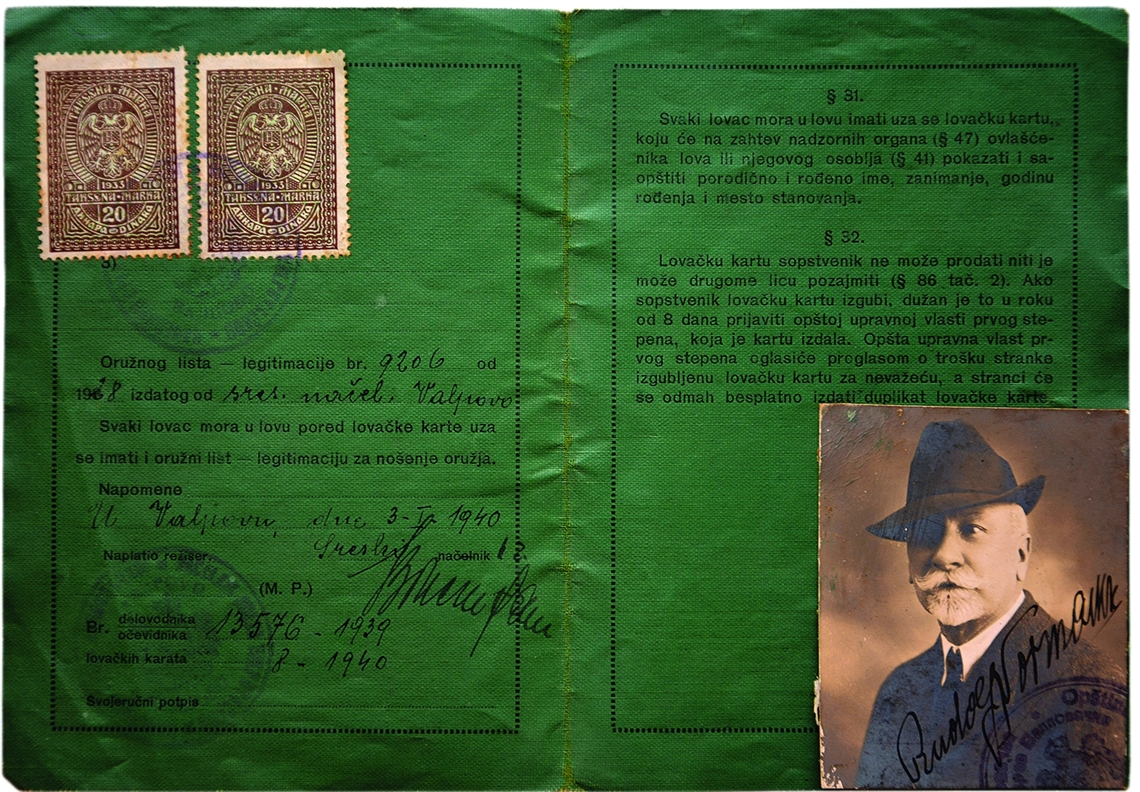 ТАКСЕНА МАРКА
1933
TAKSENA MARKA
20
ДИНАРА DINARA
ТАКСЕНА МАРКА
1933
TAKSENA MARKA
20
ДИНАРА DINARA
3)
Oružnog lista — legitimacije br. 9206 od
1938 izdatog od sres. načel. Valpovo
Svaki lovac mora u lovu pored lovačke karte uza
se imati i oružni list — legitimaciju za nošenje oružja.
Napomene
U Valpovu, dne 3-I 1940
Naplatio režiser. Sreski načelnik
(M. P.)
Br. delovodnika
očevidnika 13576 - 1939
lovačkih karata 8 - 1940
Svojeručni potpis
§ 31.
Svaki lovac mora u lovu imati uza se lovačku kartu,
koju će na zahtev nadzornih organa (§ 47) ovlašće-
nika lova ili njegovog osoblja (§ 41) pokazati i sa-
opštiti porodično i rođeno ime, zanimanje, godinu
rođenja i mesto stanovanja.
§ 32.
Lovačku kartu sopstvenik ne može prodati niti je
može drugome licu pozajmiti (§ 86 tač. 2). Ako
sopstvenik lovačku kartu izgubi, dužan je to u roku
od 8 dana prijaviti opštoj upravnoj vlasti prvog ste-
pena, koja je kartu izdala. Opšta upravna vlast pr-
vog stepena oglasiće proglasom o trošku stranke
izgubljenu lovačku kartu za nevažeću, a stranci će
se odmah besplatno izdati duplikat lovačke karte.
Rudolf Normann